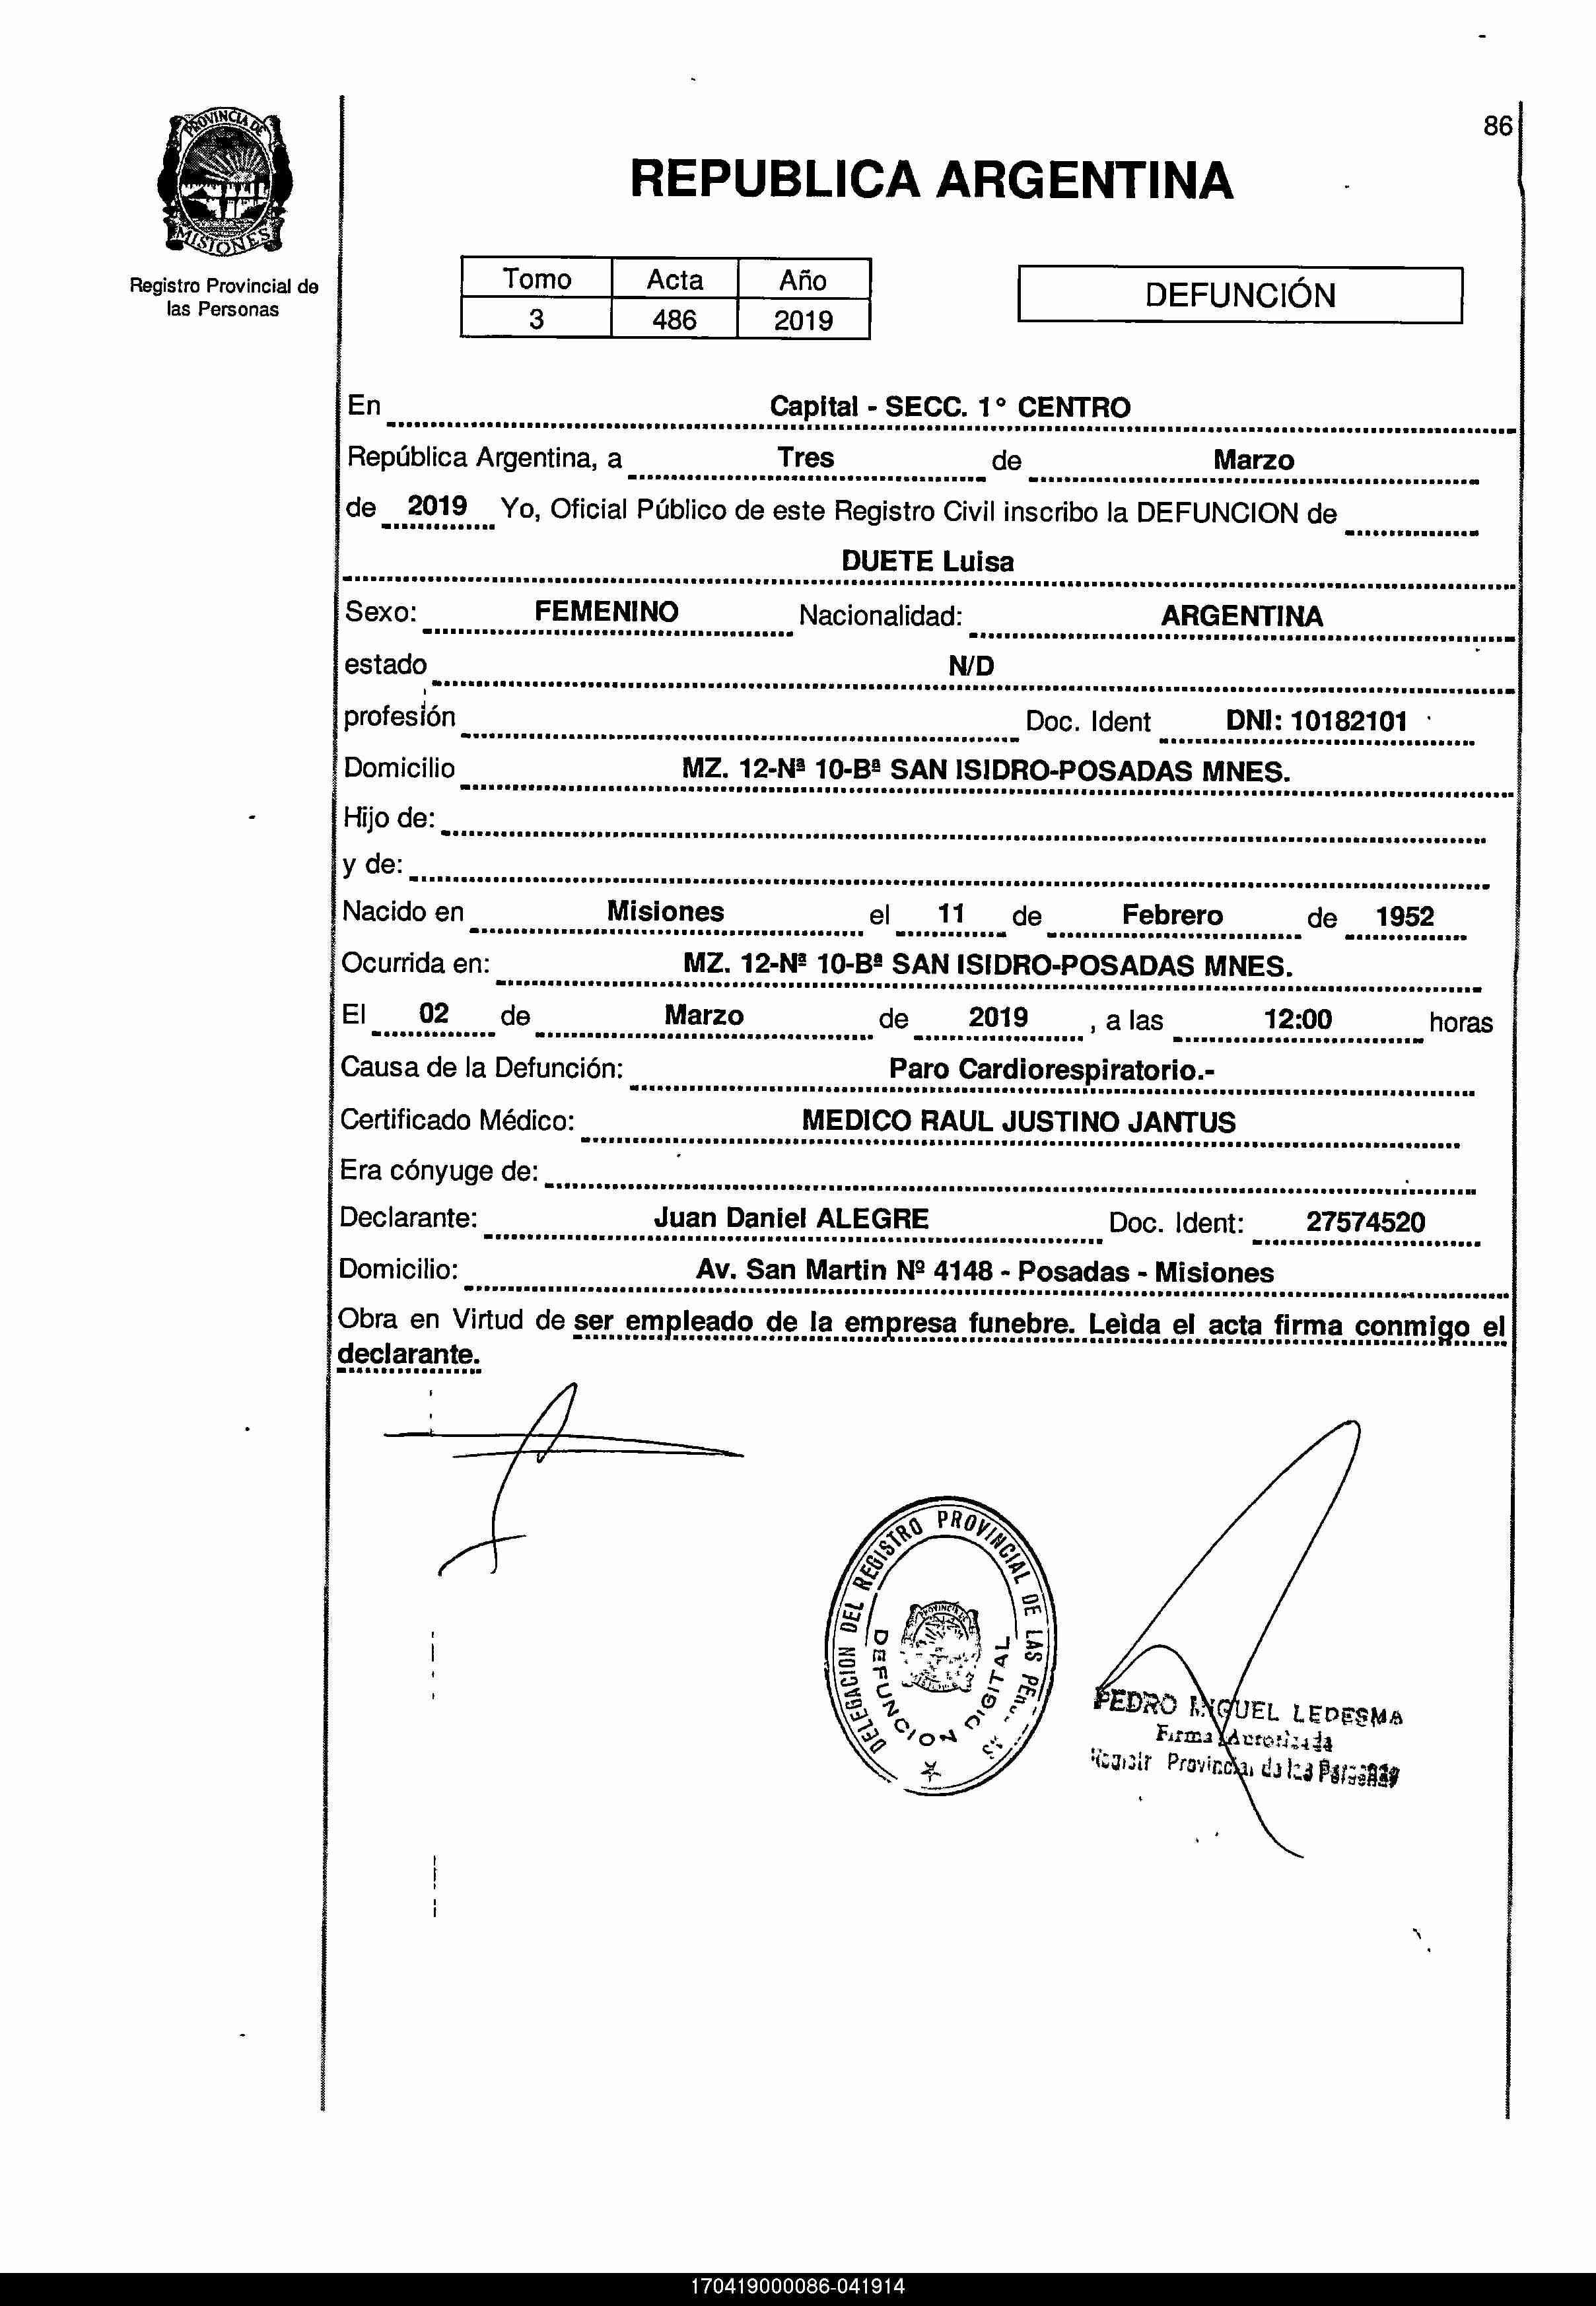 86
PROVINCIA DE
MISIONES
Registro Provincial de
las Personas
REPUBLICA ARGENTINA
Tomo Acta Año
3 486 2019
DEFUNCIÓN
En Capital - SECC. 1° CENTRO
República Argentina, a Tres de Marzo
de 2019 Yo, Oficial Público de este Registro Civil inscribo la DEFUNCION de
DUETE Luisa
Sexo: FEMENINO Nacionalidad: ARGENTINA
estado N/D
profesión Doc. Ident DNI: 10182101
Domicilio MZ. 12-Nª 10-Bª SAN ISIDRO-POSADAS MNES.
Hijo de:
y de:
Nacido en Misiones el 11 de Febrero de 1952
Ocurrida en: MZ. 12-Nª 10-Bª SAN ISIDRO-POSADAS MNES.
El 02 de Marzo de 2019 , a las 12:00 horas
Causa de la Defunción: Paro Cardiorespiratorio.-
Certificado Médico: MEDICO RAUL JUSTINO JANTUS
Era cónyuge de:
Declarante: Juan Daniel ALEGRE Doc. Ident: 27574520
Domicilio: Av. San Martin Nº 4148 - Posadas - Misiones
Obra en Virtud de ser empleado de la empresa funebre. Leida el acta firma conmigo el
declarante.
DELEGACION DEL REGISTRO PROVINCIAL DE LAS
DEFUNCION DIGITAL
PEDRO MIGUEL LEDESMA
Firma Autorizada
Provincial de las Personas
170419000086-041914